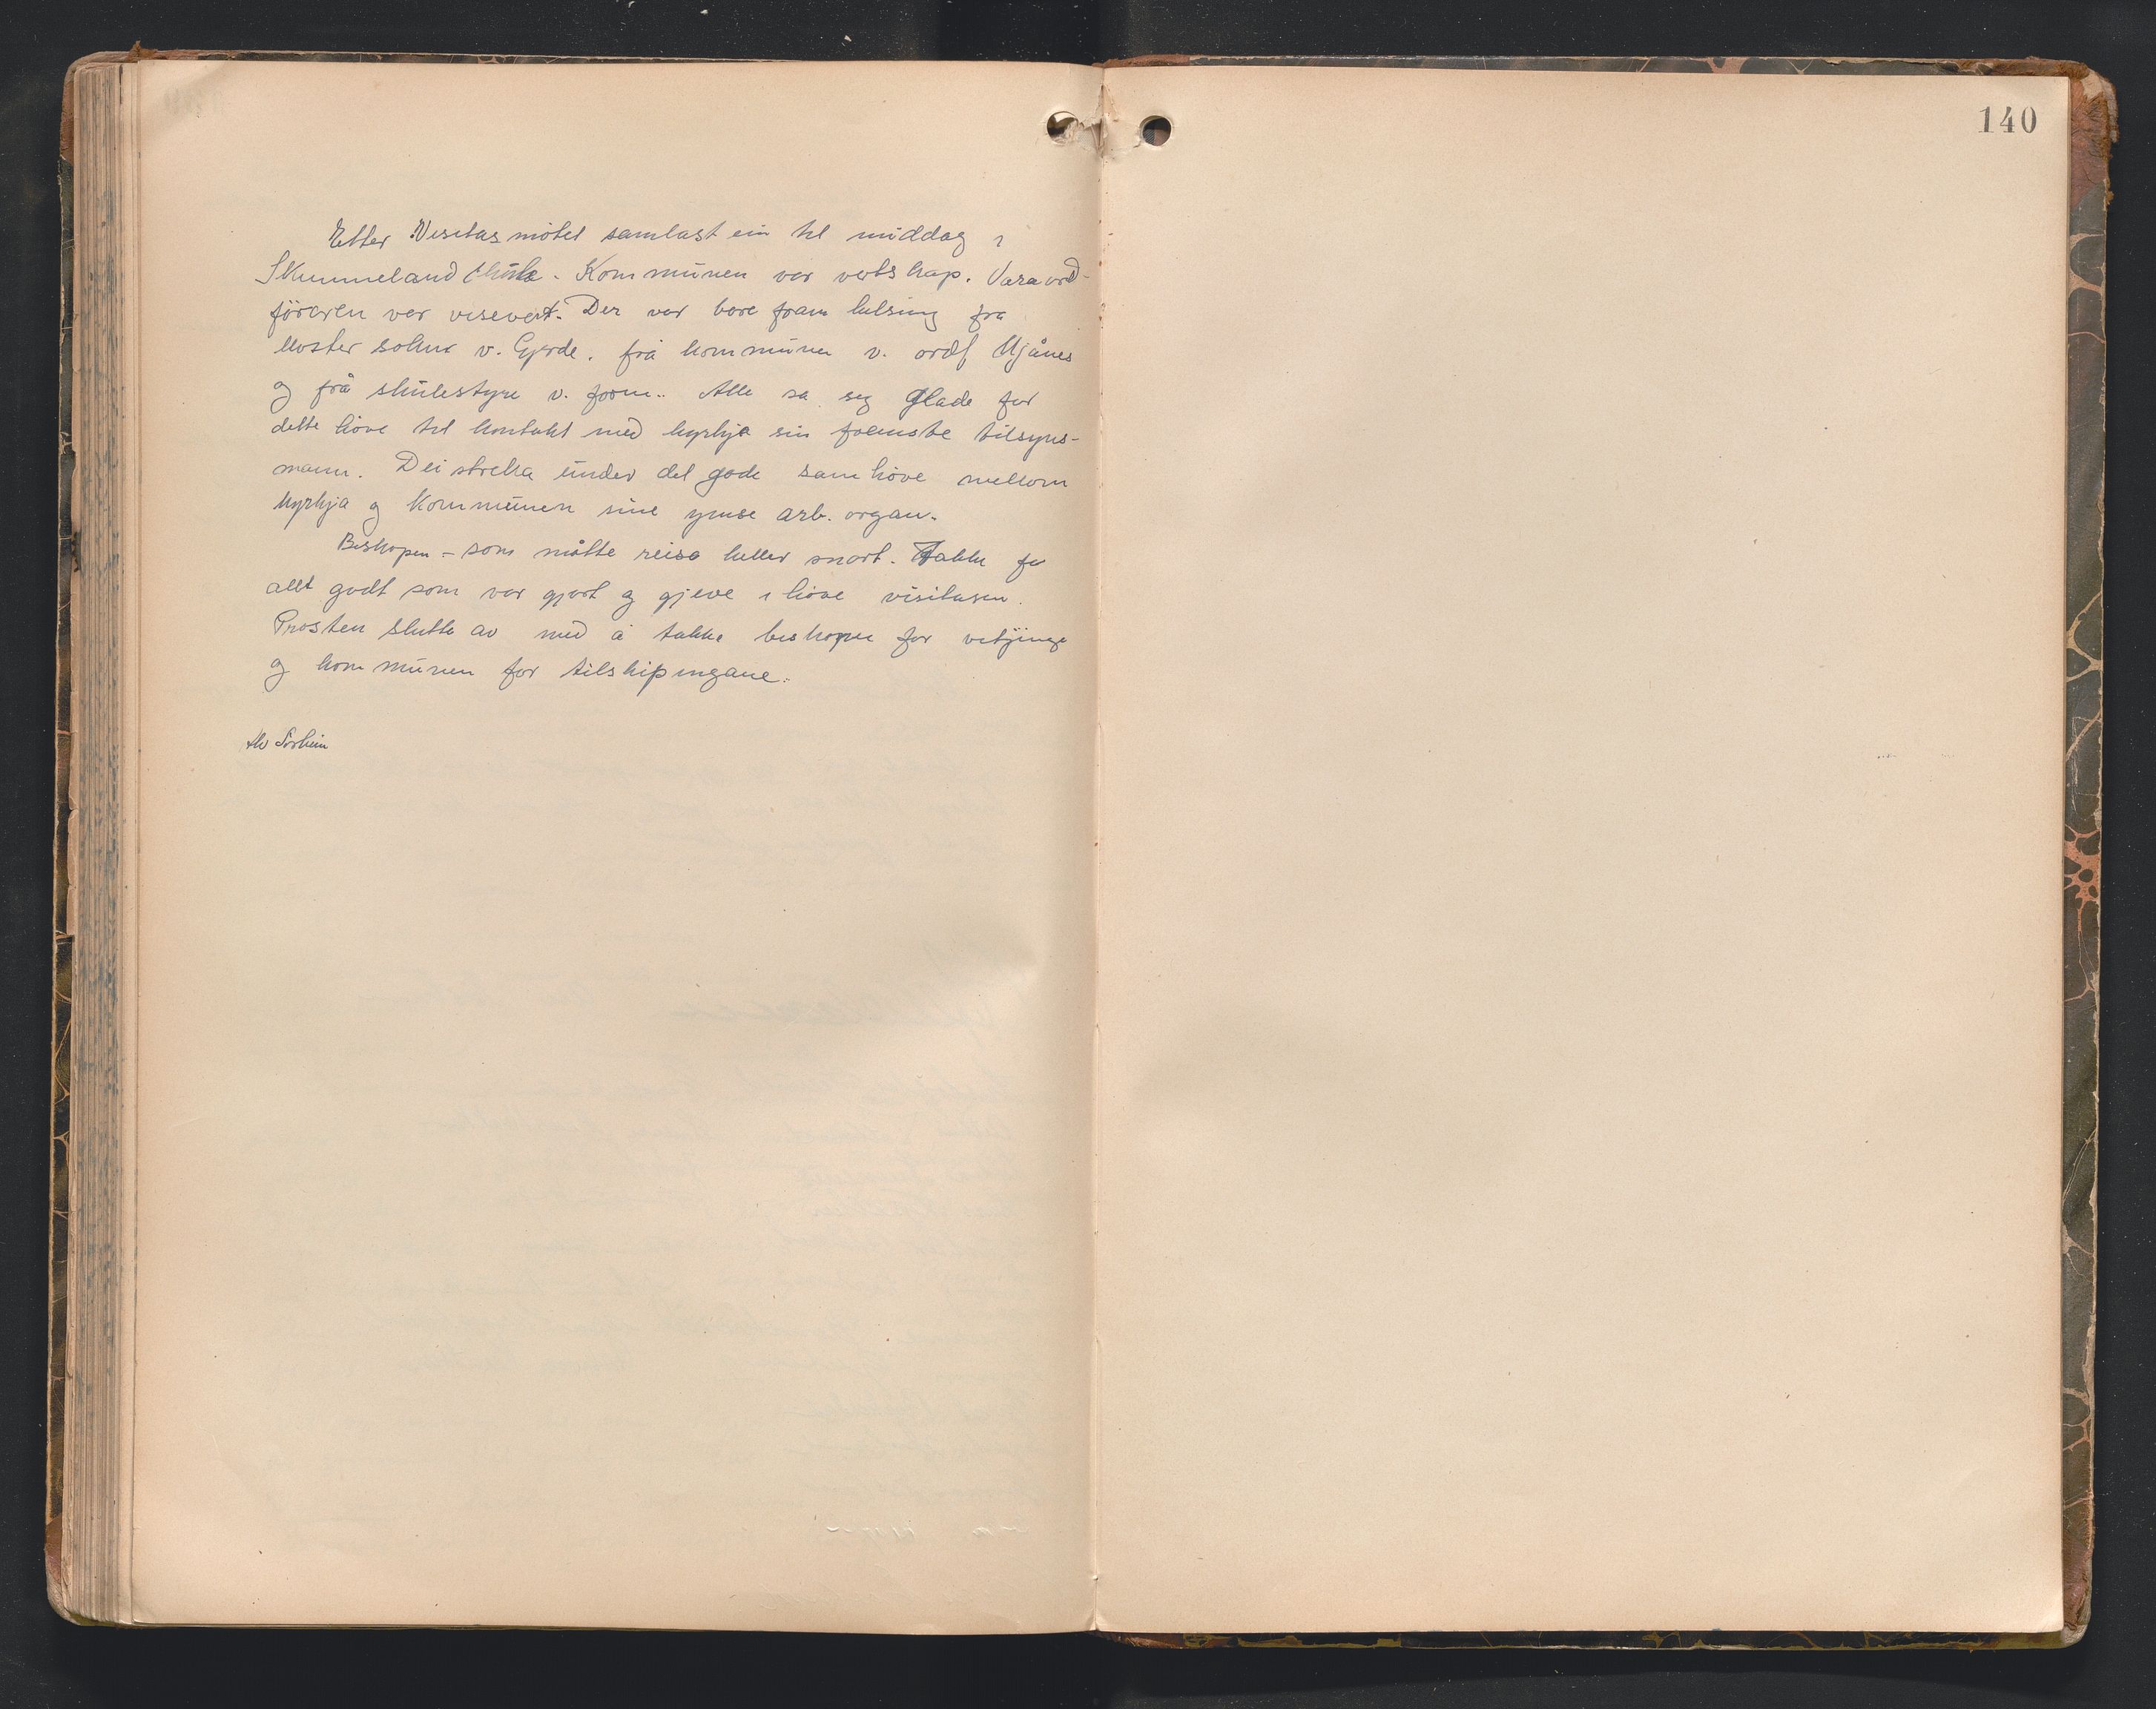 140
Etter Visitasmötet samlast ein til middag i
Skummeland skule. Kommunen var vertskap. Varaord-
föraren var visevert. Der var bore fram helsing fra
Moster sokne v. Gjerde, frå kommunen v. ordf
og frå skulestyre v. form.. Alle sa seg glade for
dette höve til kontakt med kyrkja sin fremste tilsyns-
mann. Dei streka under det gode samhöve mellom
kyrkja og kommunen sine ymse arb. organ.
Biskopen - som måtte reisa heller snart. Takka for
allt godt som var gjort og gjeve i höve visitasen.
Prosten slutta av med å takke biskopen for vitjinga
og kommunen for tilskipingane.